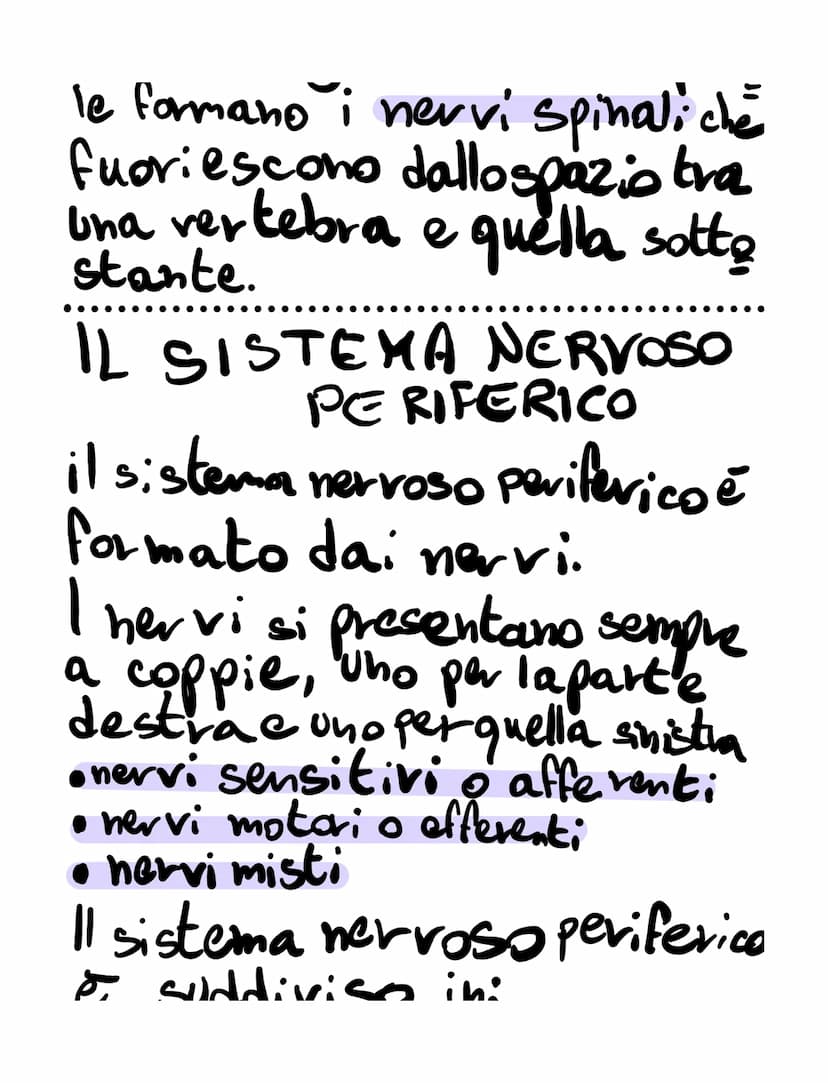 le formano i nervi spinali che
fuoriescono dallo spazio tra
una vertebra e quella sotto
stante.
IL SISTEMA NERVOSO
PERIFERICO
il sistema nervoso periferico è
formato dai nervi.
I nervi si presentano sempre
a coppie, uno per la parte
destra e uno per quella sinistra
•nervi sensitivi o afferenti
• nervi motori o efferenti
• nervi misti
Il sistema nervoso periferico
è suddiviso in: